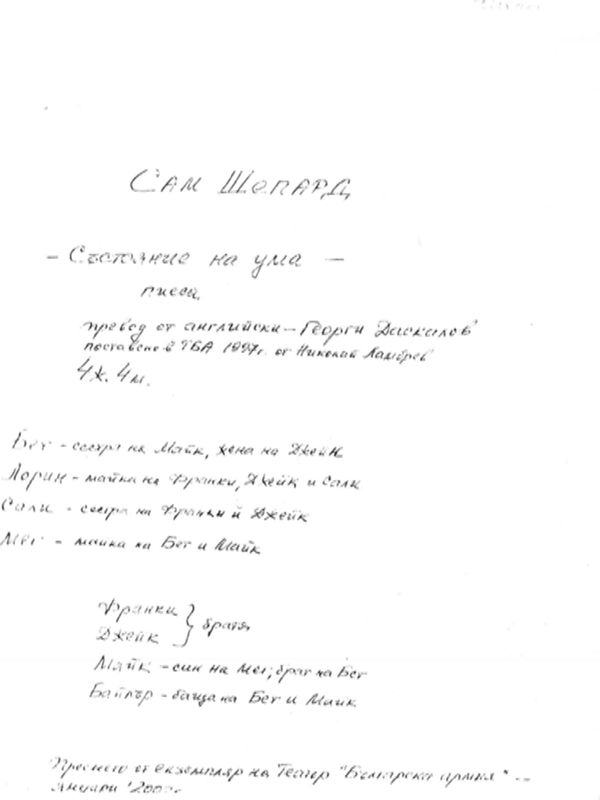 Сам Шепард
– Състояние на ума –
пиеса
превод от английски – Георги Даскалов
поставено в ТБА 1997г. от Николай Ламбрев
4ж. 4м.
Бет – сестра на Майк, жена на Джейк
Лорин – майка на Франки, Джейк и Сали
Сали – сестра на Франки и Джейк
Мег – майка на Бет и Майк
Франки } братя
Джейк
Майк – син на Мег; брат на Бет
Байлър – баща на Бет и Майк
от екземпляр на Театър "Българска армия" –
януари